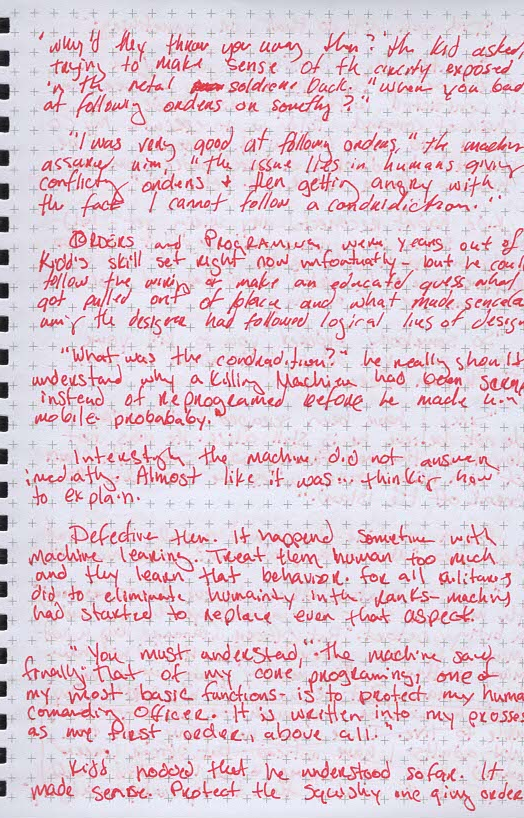 "why'd they throw you away then?" the kid asked,
trying to make sense of th circity exposed
in th metal soldiers back. "when you bad
at following orders or somethg?"
"I was very good at following orders," the machine
assured him, "the issue lies in humans giving
conflicty orders & then getting angry with
the fact I cannot follow a condridiction."
ORDERS and PROGRAMING were years out of
Kidd's skill set right now unfortuatly - but he could
follow the wiring or make an educated guess what
got pulled out of place and what made sence
the designer had followed logical lies of design
"What was the condradition?" he really should
understand why a Killing Machine had been
instead of Reprogramed before he made
mobile probabaly.
Interestgly the machine did not answer
imediatly. Almost like it was... thinkig how
to explain.
Defective then. It happend sometime with
machine learing. Treat them human too much
and they learn that behavior. For all militarys
did to eliminate humainty inth ranks- machins
had started to replace even that aspect.
"You must understad," the machine said
finally, "that of my core programing, one of
my most basic functions- is to protect my human
comanding officer. It is written into my
as my first order, above all."
Kidd nodded that he understood so far. It
made sense. Protect the squishy one givig orders